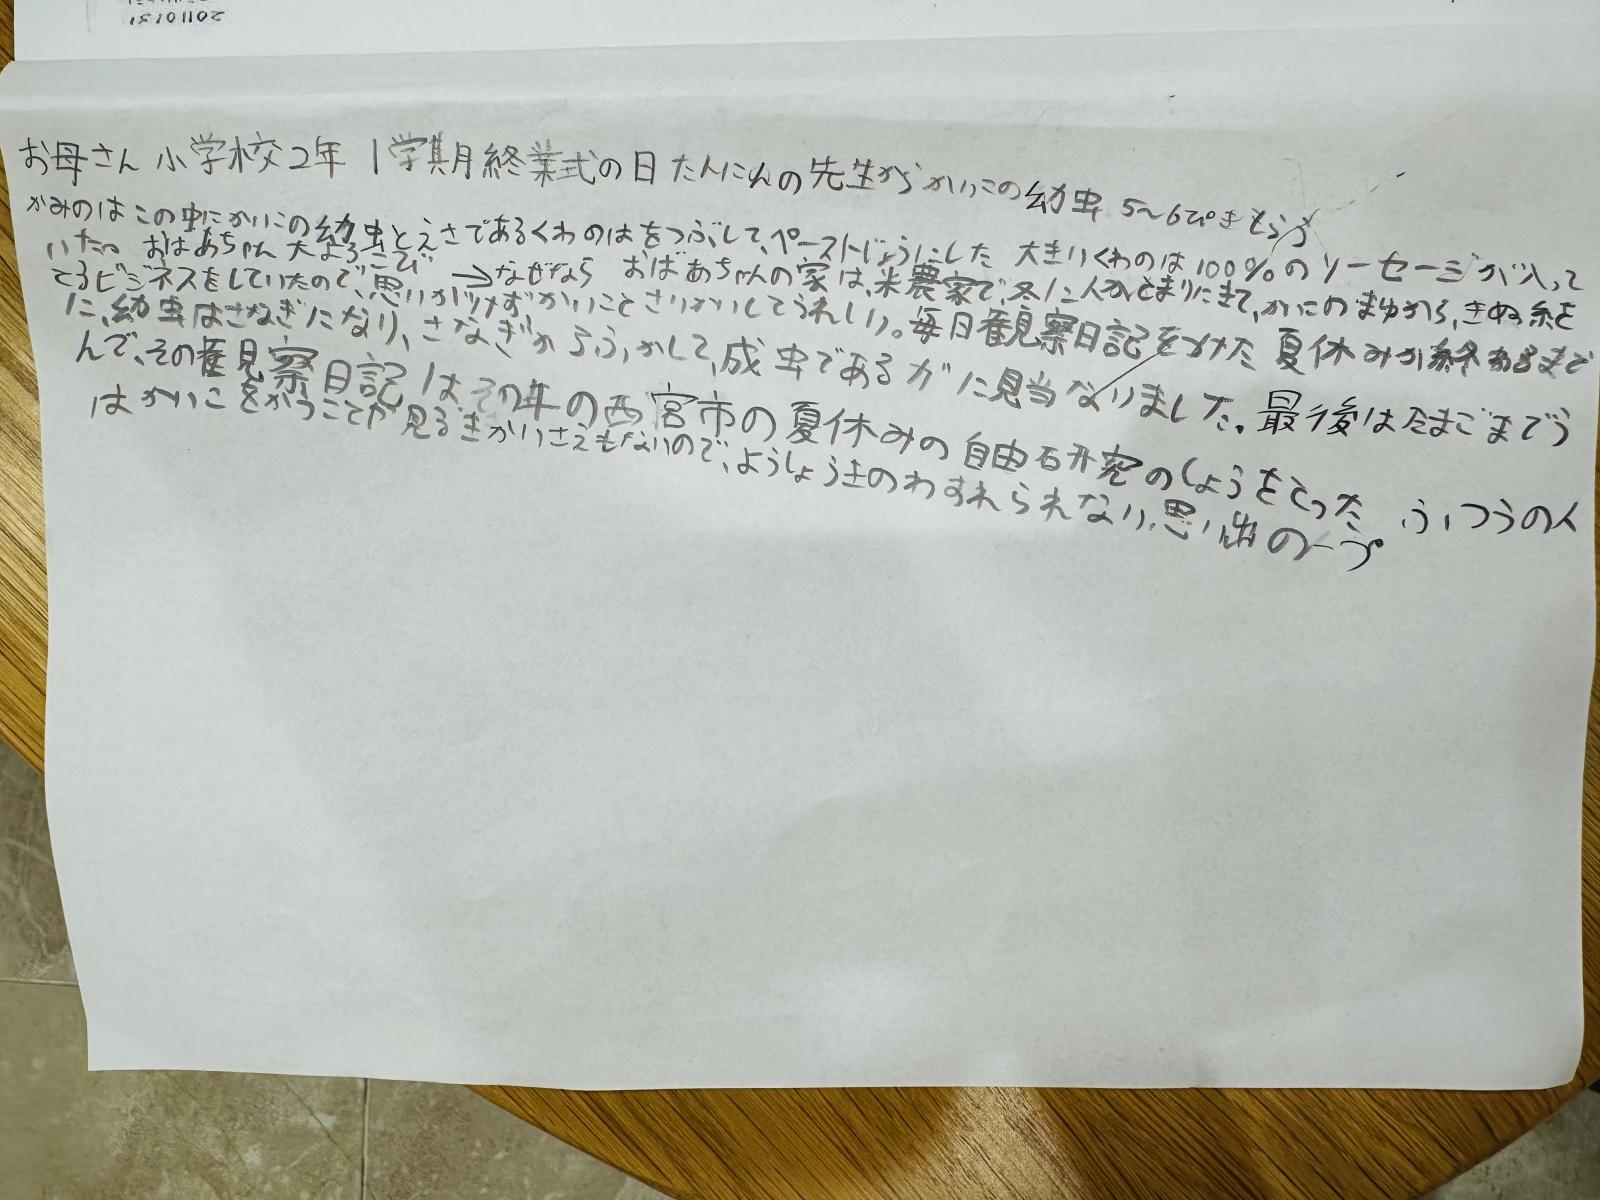 20110131
お母さん 小学校2年 1学期終業式の日 たんにんの先生が かいこの幼虫 5〜6ぴきもらう
かみのはこの中にかいこの幼虫とえさであるくわのはをつぶして、ペーストじょうにした 大きいくわのは100%のソーセージが入って
いた。 おばあちゃん大よろこび →なぜなら おばあちゃんの家は、米農家で、冬に人がとまりにきて、かいこのまゆから、きぬ糸を
とるビジネスをしていたので、思いがけずかいことさいかいしてうれしい。毎日観察日記をつけた 夏休みが終わるまで
に、幼虫はさなぎになり、さなぎからふかして、成虫であるガに見当なりました。最後はたまごまでう
んで、その観察日記は、その年の西宮市の夏休みの自由研究のしょうをとった ふつうの人
はかいこをかうことや見るきかいさえもないので、ようしょうきのわすれられない思い出の一つ。